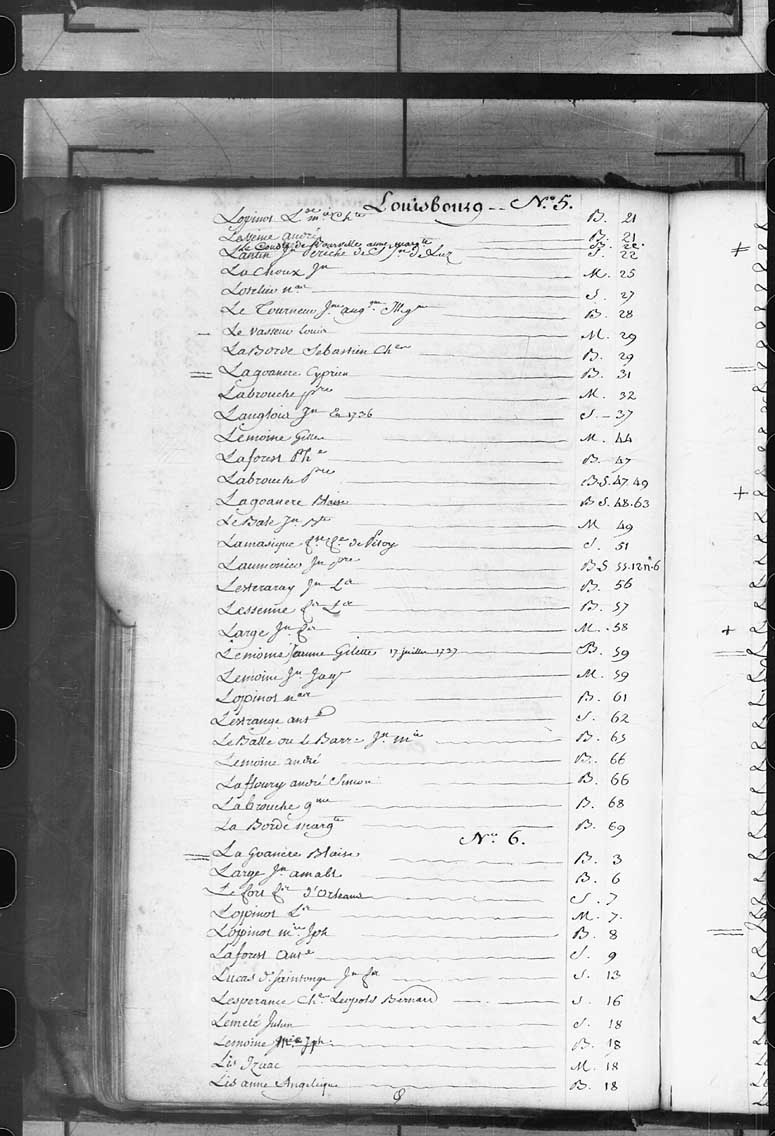 Louisbourg -- N.º 5.
Lopinot L.se m.ie Ch.te B. 21
Lesenne andré B. 21
Le Coudre de Bourville anne marg.te B. 22
Lantin J.n Periche de S.t J.n de Luz S. 22
La Choux J.n M. 25
Loselieu n.as S. 27
Le Tourneur J.ne aug.ne M.gte B. 28
Le Vasseur Louis M. 29
La Borde Sebastien Ch.es B. 29
Lagoanere Cyprien B. 31
Labrouche p.rre M. 32
Langlois J.n En 1736 S. - 37
Lemoine Gilles M. 44
Laforest Ph.e B. 47
Labrouche P.rre B S. 47. 49
Lagoanere Blaise B S. 48. 63
Le Bale J.n B.te M 49
Lamasique S. 51
Laumonier J.n p.rre B S 55. 12 n.º 6
Lesteraray J.n L.se B. 56
Lessenne f.se L.se B. 57
Large J.n f.s M. . 58
Lemoine Jeanne Gilette 17 juillet 1737 B. 59
Lemoine J.n Jaq. M. 59
Lopinot n.as B. 61
Lestrange ant.e S. 62
Le Balle ou Le Barre J.n m.ie B. 65
Lemoine andré B. 66
Lafloury andré Simon B. 66
Labrouche g.me B. 68
La Borde marg.te B. 69
N.º 6.
La Goanere Blaise B. 3
Large J.n amable B. 6
Le fort f.se d'Orleans S. 7
Lopinot L.se M. 7.
Lopinot m.ie Jph B. 8
Laforest Ant.e S. 9
Lucas d.t Saintonge J.n f.s S. 13
Lesperance Ch.s Leopold Bernard S. 16
Lemetz Julien S. 18
Lemoine Jph B. 18
Lis Izaac M. 18
Lis anne Angelique B. 18